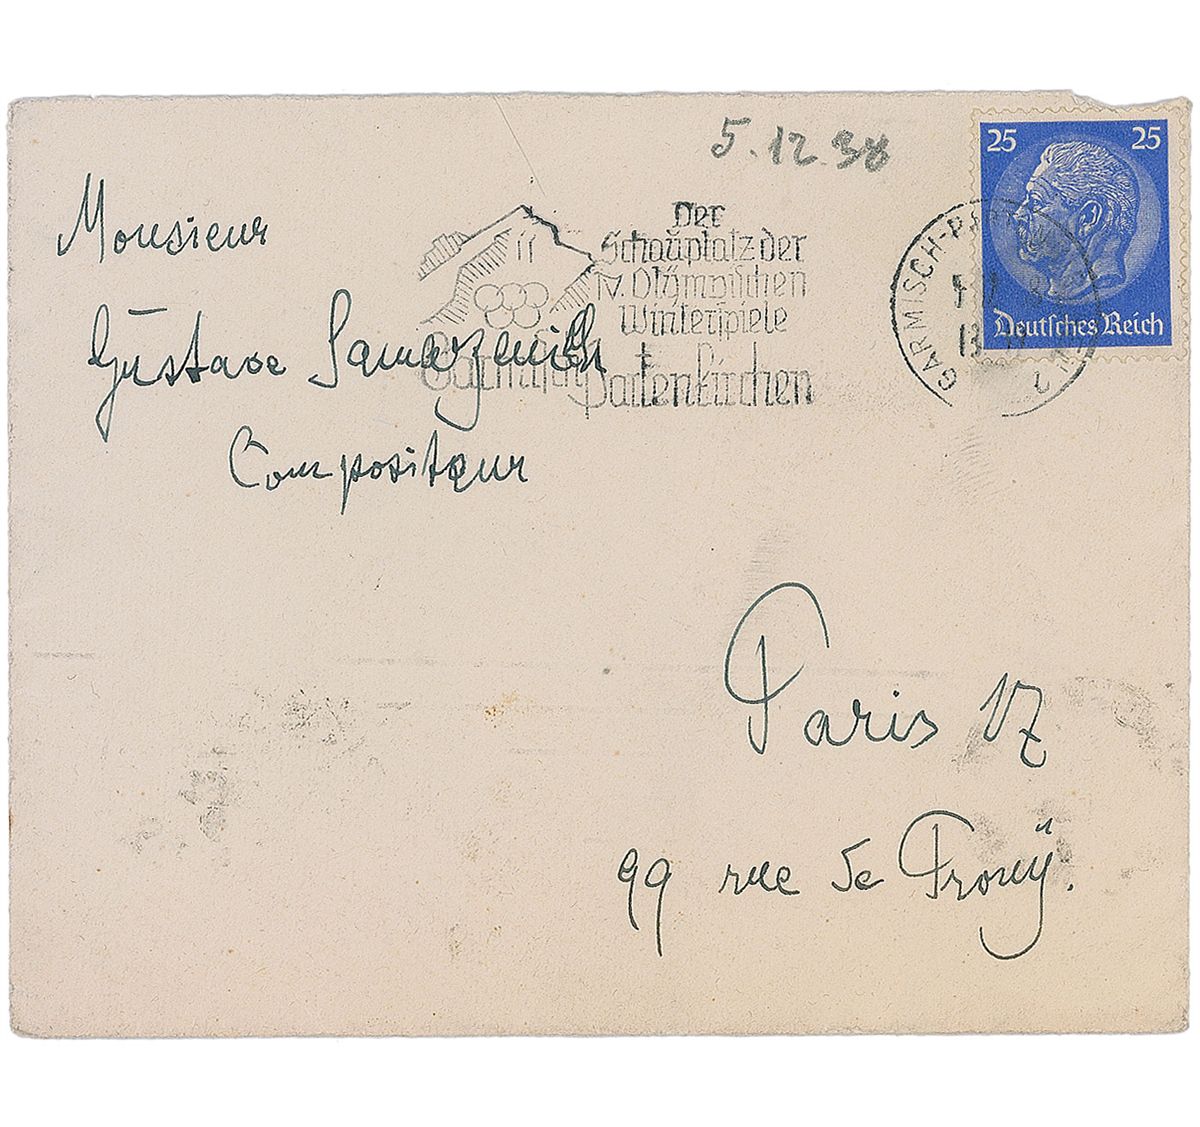 5.12.38
25 25
Deutsches Reich
GARMISCH-PA
Der
Schauplatz der
IV. Olympischen
Winterspiele
Partenkirchen
Monsieur
Gustave Samazeuilh
Compositeur
Paris 17
99 rue de Prony.